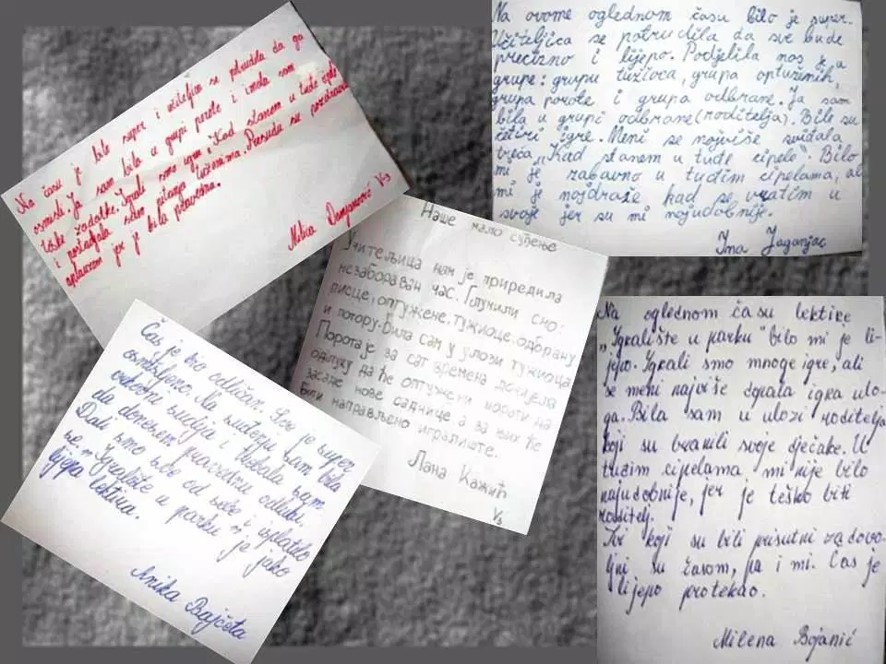 Na času je bilo super i učiteljica se potrudila da ga
osmisli. Ja sam bila u grupi porote i imala sam
teške zadatke. Igrali smo igru „Kad stanem u tuđe cipele"
i postavljala sam pitanja tužiocima. Presudu su pozdravili
aplauzom jer je bila pravedna.
Milica Damjanović V3
Na ovome oglednom času bilo je super.
Učiteljica se potrudila da sve bude
precizno i lijepo. Podjelila nas je u
grupe: grupu tužioca, grupa optuženih,
grupa porote i grupa odbrane. Ja sam
bila u grupi odbrane (roditelja). Bile su
četiri igre. Meni se najviše sviđala
treća „Kad stanem u tuđe cipele". Bilo
mi je zabavno u tuđim cipelama, ali
mi je najdraže kad se vratim u
svoje jer su mi najudobnije.
Ina Jaganjac
Наше мало суђење
Учитељица нам је приредила
незабораван час. Глумили смо:
писце, оптужене, тужиоце, одбрану
и потору. Била сам у улози тужиоца
Порота је за сат времена донијела
одлуку да ће оптужени морати да
засаде нове саднице а за њих ће
бити направљено игралиште.
Лана Кажић
V3
Čas je bio odličan. Sve je super
osmišljeno. Na suđenju sam bila
vrhovni sudija i trebala sam
da donesem pravednu odluku.
Dali smo sve od sebe i isplatilo
se. „Igralište u parku" je jako
lijepa lektira.
Anika Bajčeta
Na oglednom času lektire
„Igralište u parku" bilo mi je li-
jepo. Igrali smo mnoge igre, ali
se meni najviše dopala igra ulo-
ga. Bila sam u ulozi roditelja
koji su branili svoje dječake. U
tuđim cipelama mi nije bilo
najudobnije, jer je teško biti
roditelj.
Svi koji su bili prisutni zadovo-
ljni su časom, pa i mi. Čas je
lijepo protekao.
Milena Bojanić